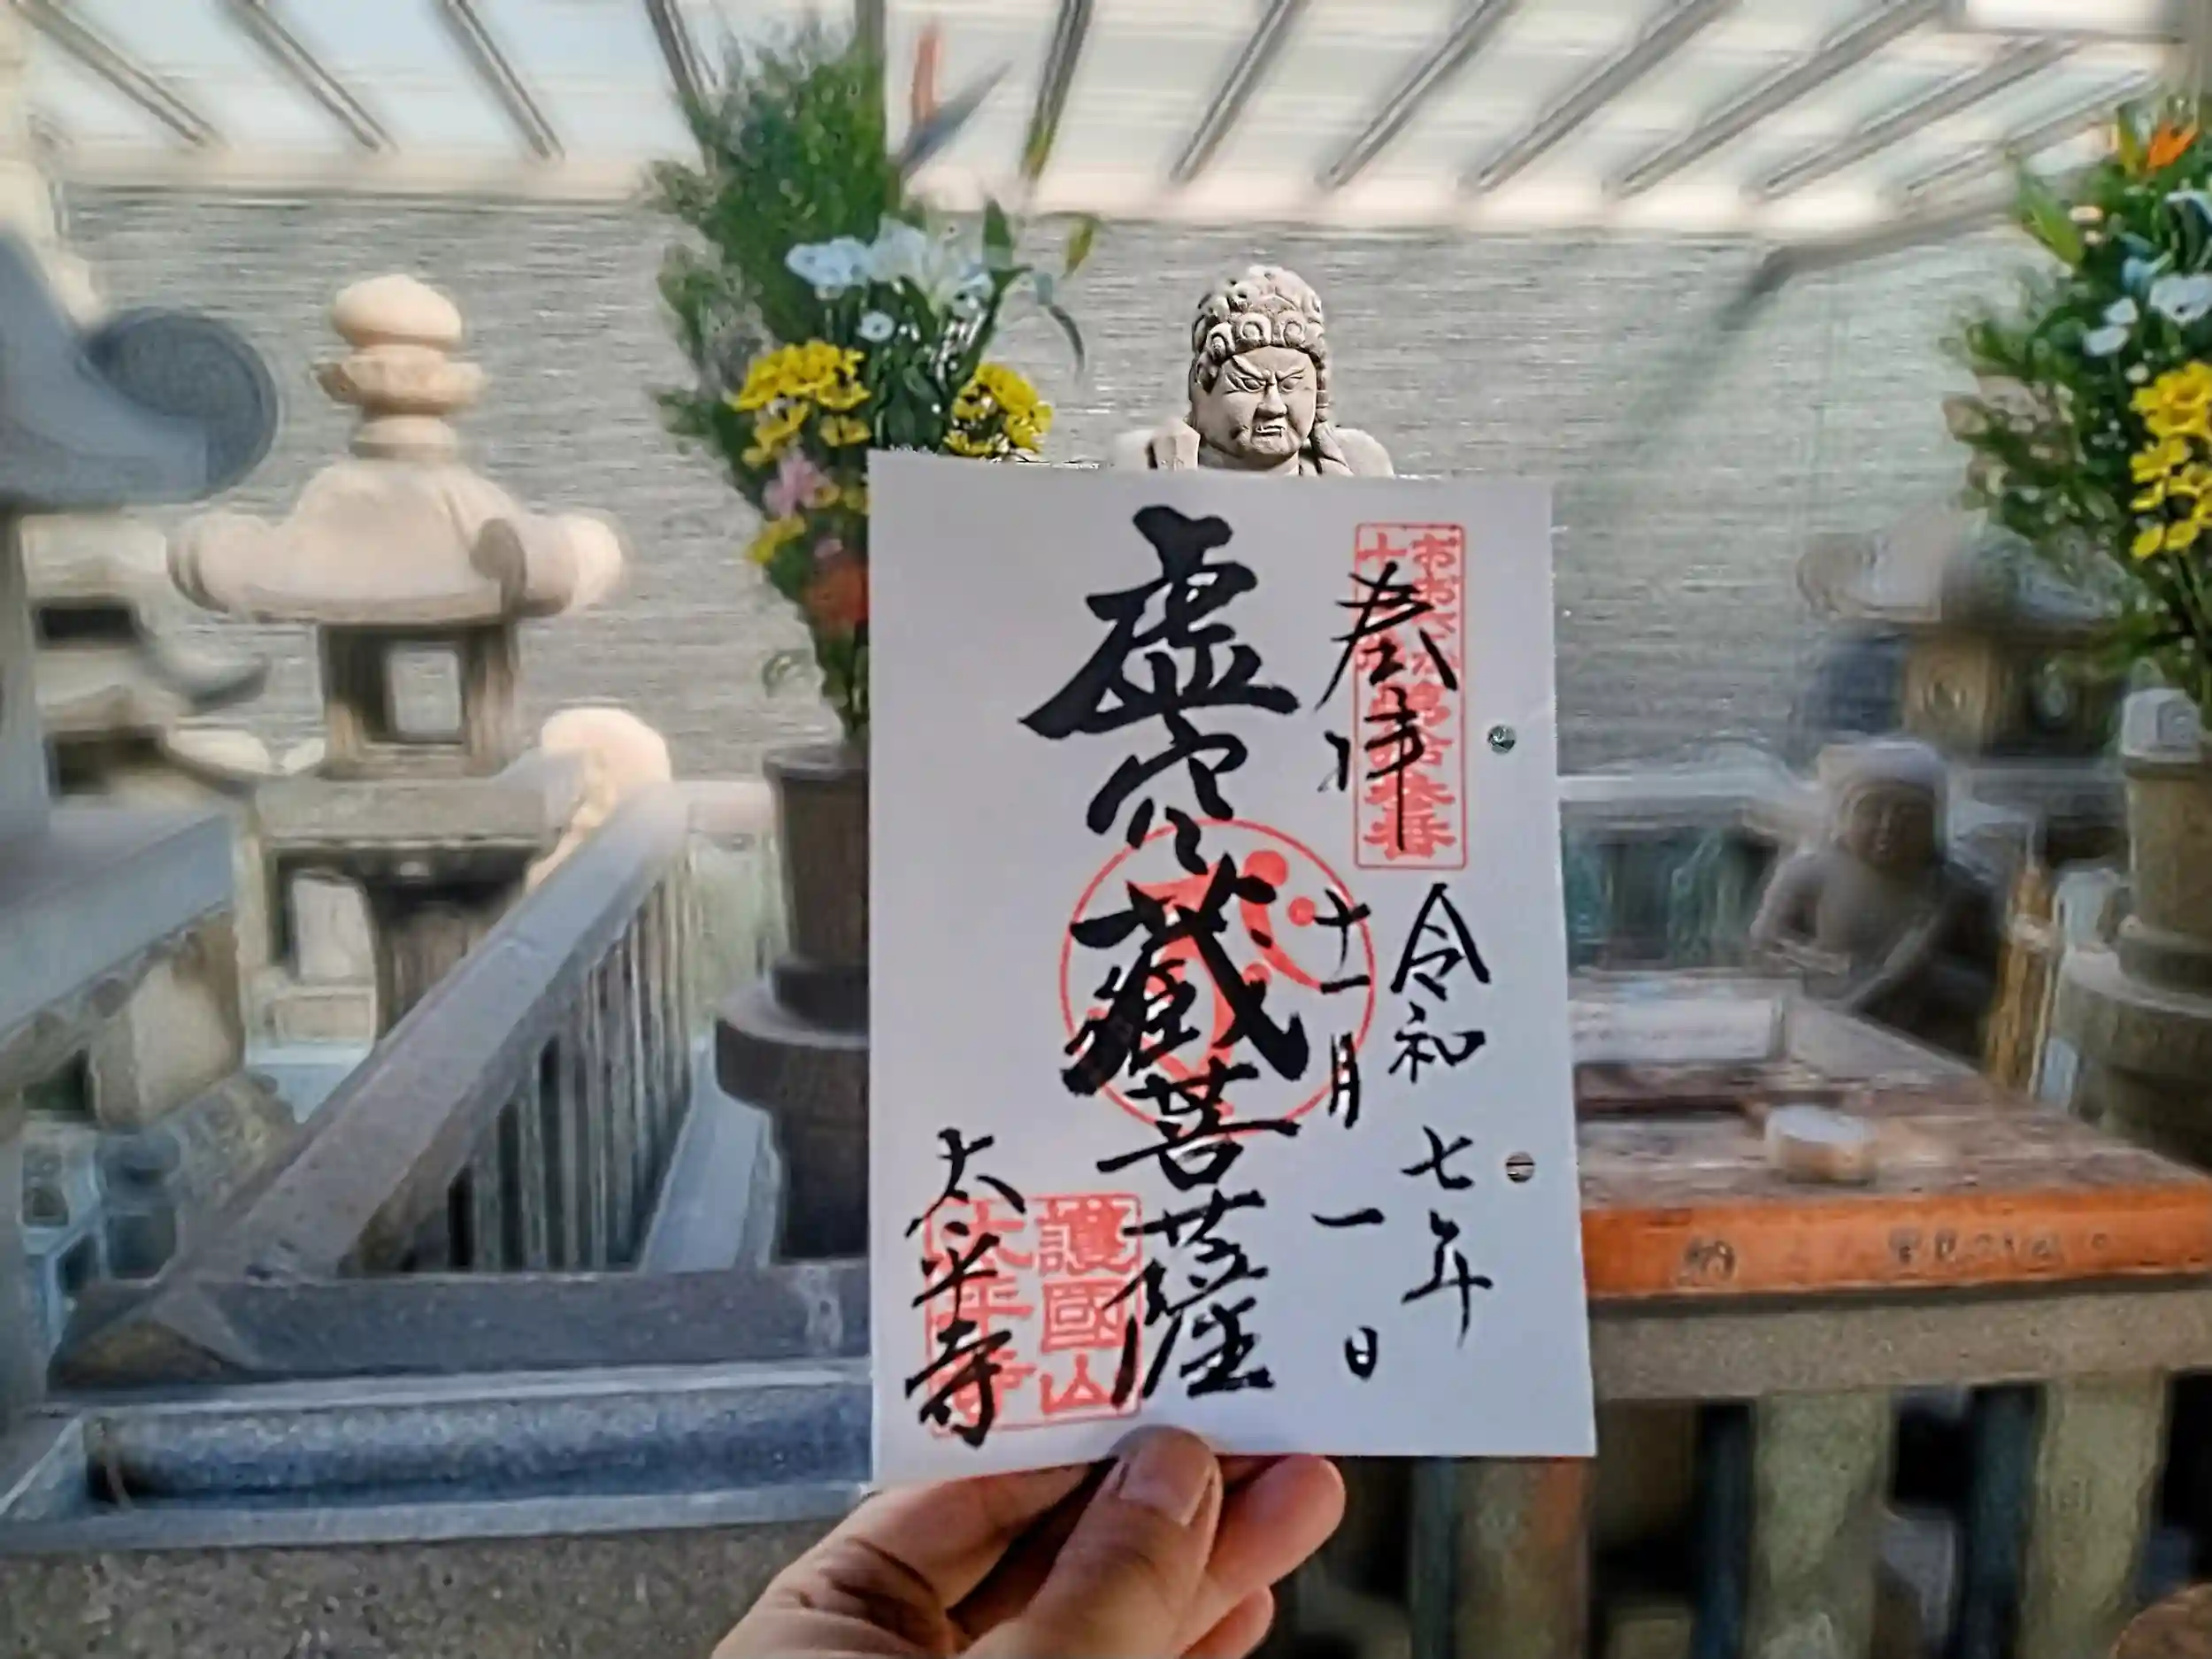 奉拝
令和七年
十一月一日
虚空蔵菩薩
太平寺
護國山
太平寺